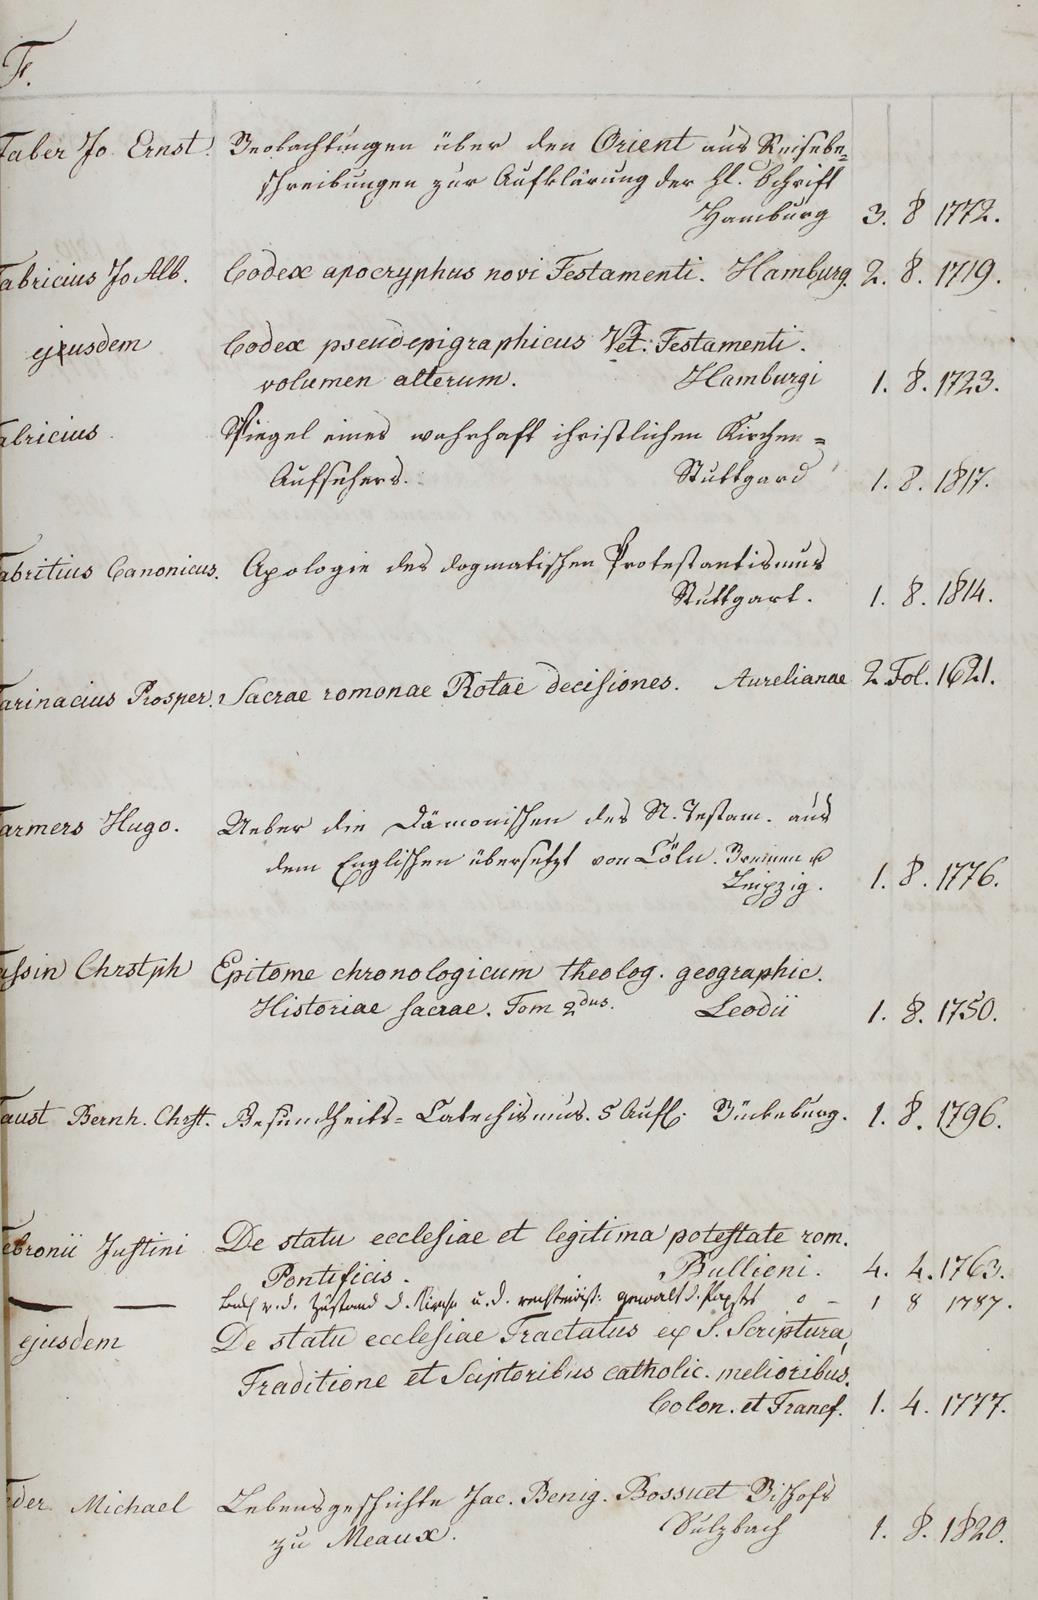 F.
Faber Jo. Ernst. Beobachtungen über den Orient aus Reisebe=
schreibungen zur Aufklärung der hl. Schrift
Hamburg 3. 8 1772.
Fabricius Jo Alb. Codex apocryphus novi Testamenti. Hamburg. 2. 8. 1719.
ejusdem Codex pseudepigraphicus Vet. Testamenti.
volumen alterum. Hamburgi 1. 8. 1723.
Fabricius Spiegel eines wahrhaft christlichen Kirchen=
Aufsehers. Stuttgard 1. 8. 1817.
Fabritius Canonicus. Apologie des dogmatischen Protestantismus
Stuttgart. 1. 8. 1814.
Farinacius Prosper. Sacrae romonae Rotae decisiones. Aurelianae 2 Fol. 1621.
Farmers Hugo. Ueber die Dämonischen des N. Testam. aus
dem Englischen übersetzt von Cöln. Bremen u
Leipzig. 1. 8. 1776.
Fassin Chrstph Epitome chronologicum theolog. geographic.
Historiae sacrae. Tom 2dus. Leodii 1. 8. 1750.
Faust Bernh. Chrst. Gesundheits=Catechismus. 5 Aufl. Bückeburg. 1. 8. 1796.
Febronii Justini De statu ecclesiae et legitima potestate rom.
Pontificis. Bullieni. 4. 4. 1763.
— — Buch v. d. Zustand d. Kirche u. d. rechtmäß. gewalt d. Papsts o – 1 8 1787.
ejusdem De statu ecclesiae Tractatus ex S. Scriptura,
Traditione et Sciptoribus catholic. melioribus.
Colon. et Francf. 1. 4. 1777.
Feder Michael Lebensgeschichte Jac. Benig. Bossuet Bischofs
zu Meaux. Sulzbach 1. 8. 1820.